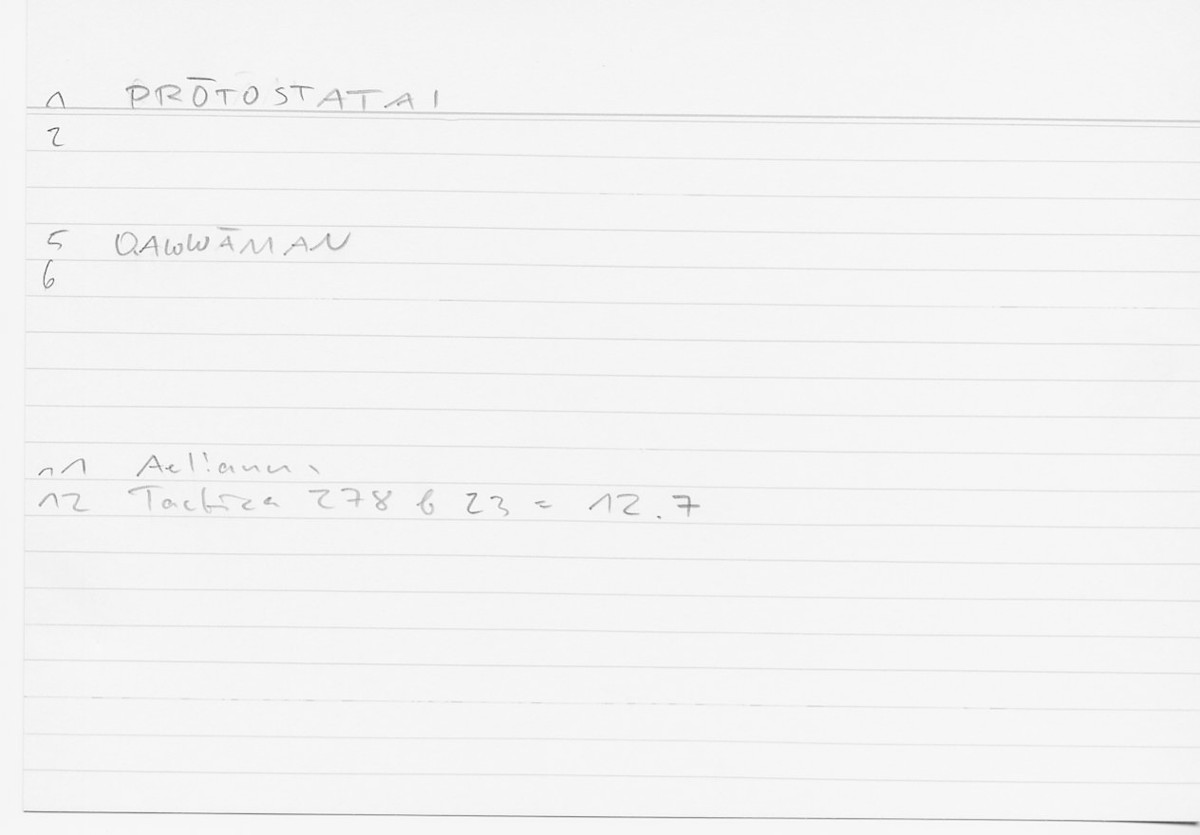 1 PRŌTOSTATAI
2
5 QAWWĀMAN
6
11 Aelianus
12 Tactica 278 b 23 = 12.7